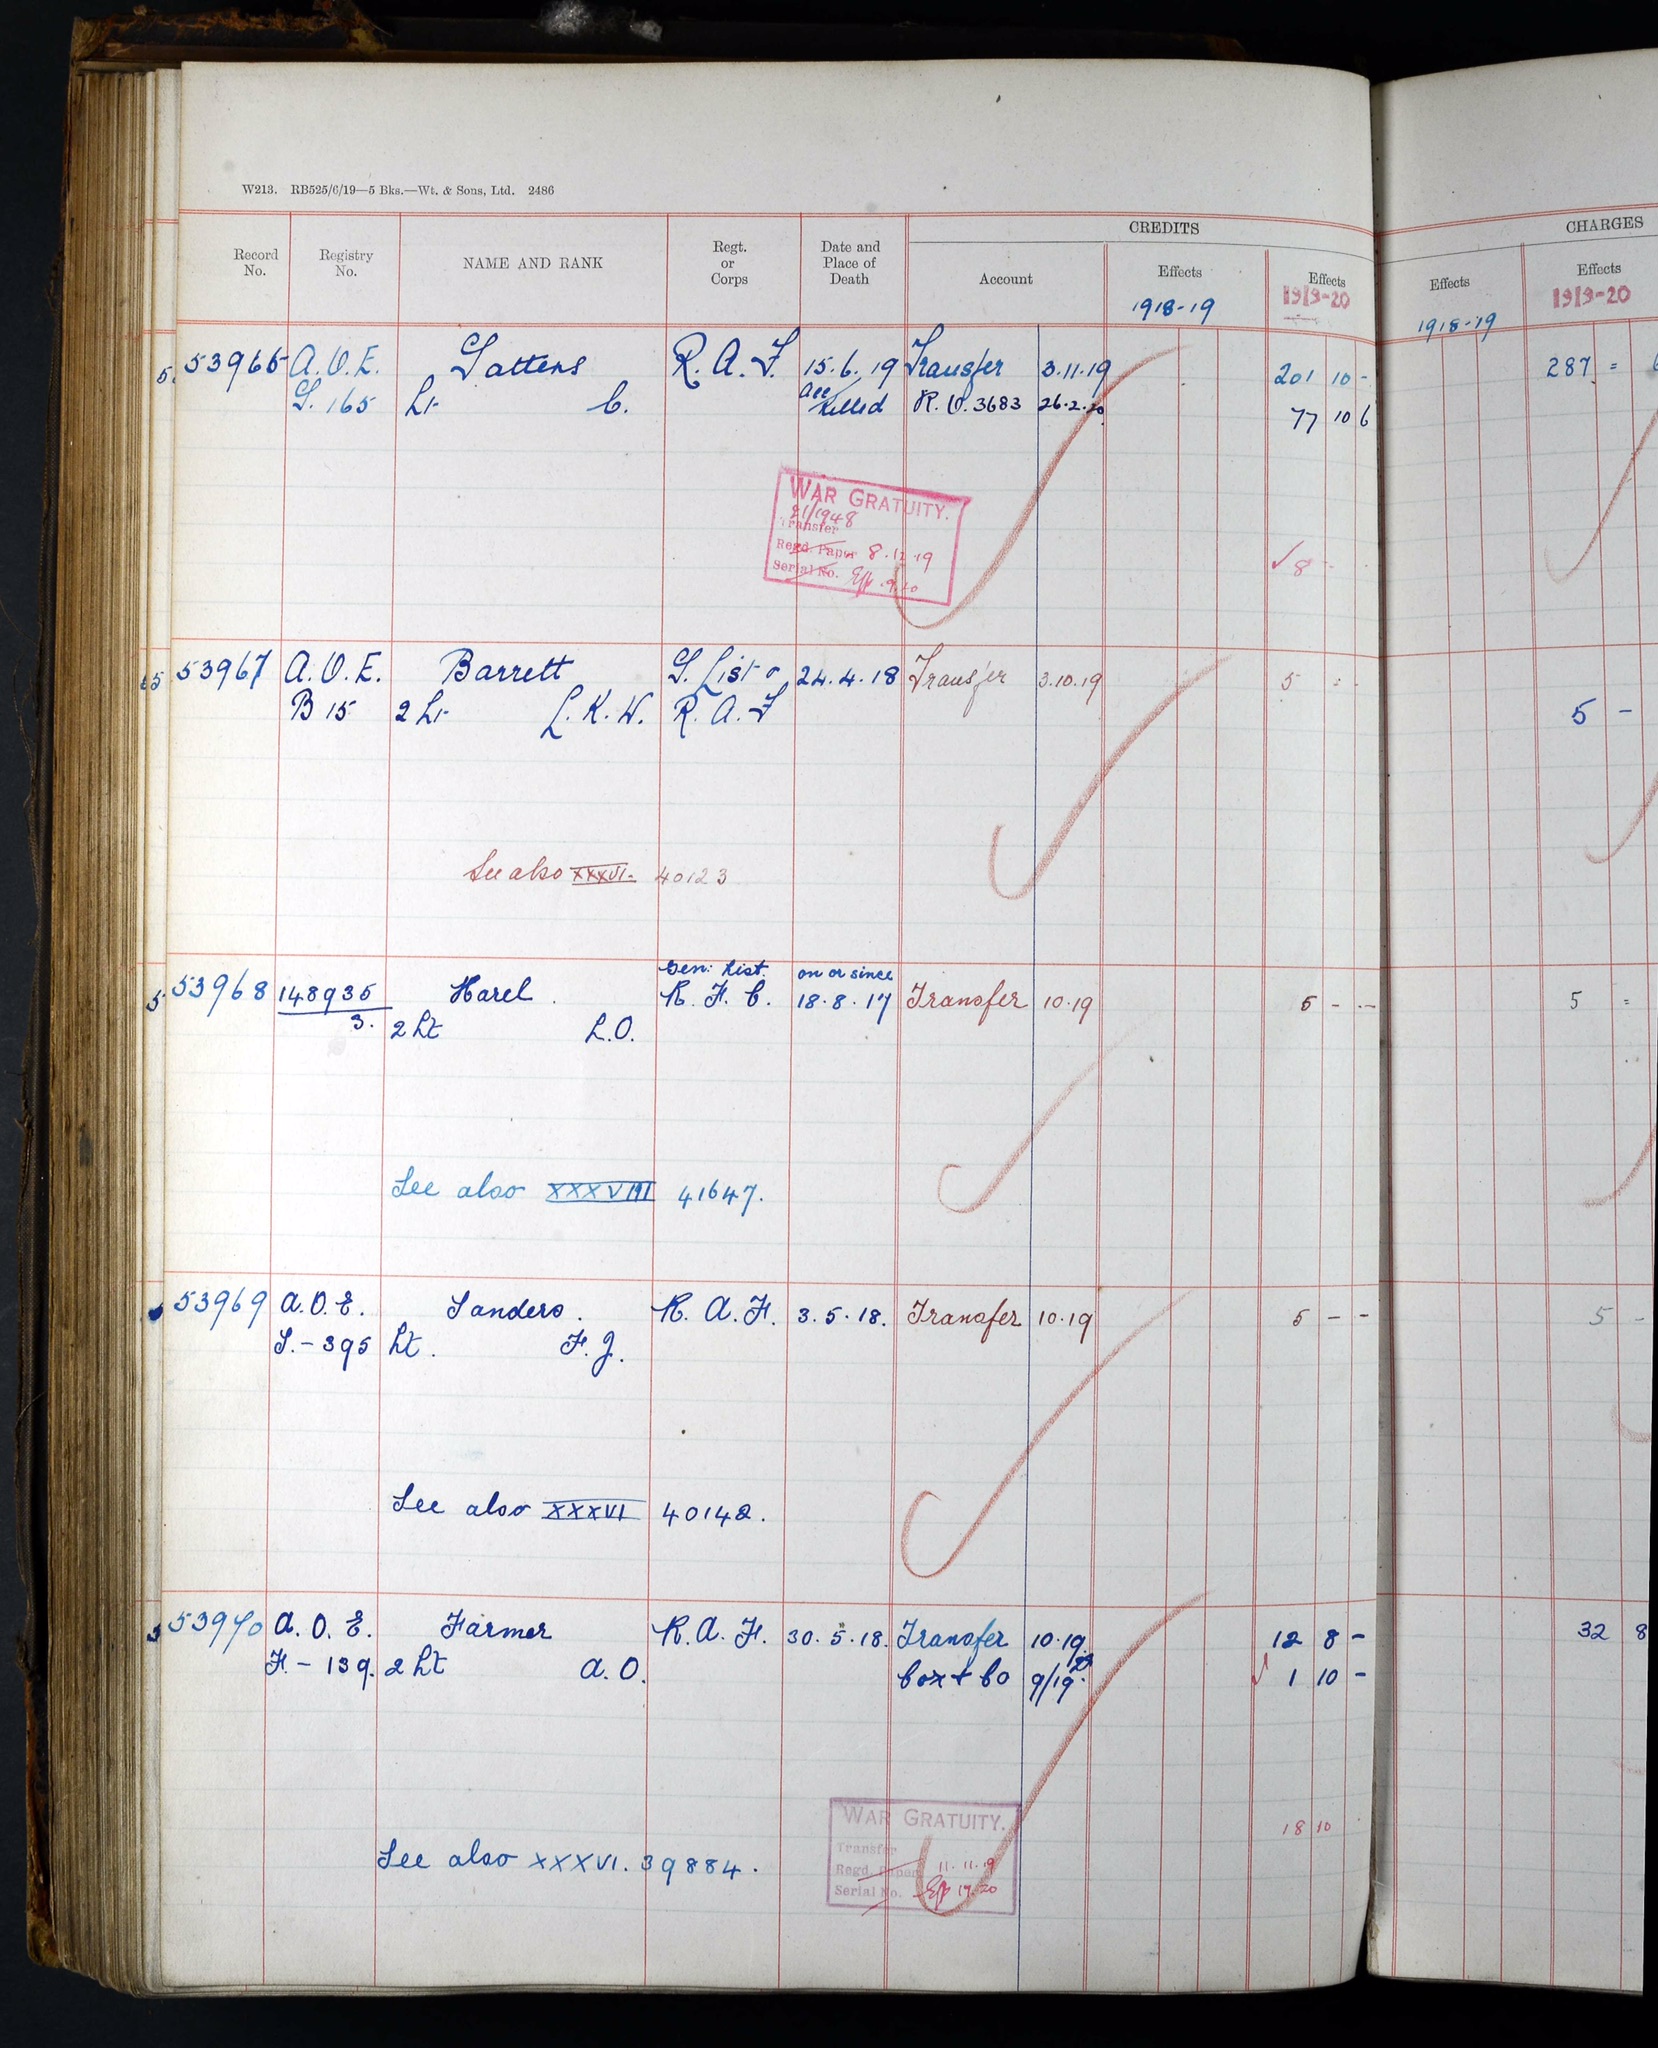 W213. RB525/6/19—5 Bks.—Wt. & Sons, Ltd. 2486
CREDITS
CHARGES
Record No.
Registry No.
NAME AND RANK
Regt. or Corps
Date and Place of Death
Account
Effects 1918-19
Effects 1919-20
Effects 1918-19
Effects 1919-20
53966 A.O.E. Gattens R.A.F. 15.6.19 Transfer 3.11.19 201 10 - 287 =
G.165 Lt C. Acc Killed R.O. 3683 26.2.20 77 10 6
WAR GRATUITY.
21/1948
Transfer
Regd. Paper 8.12.19
Serial No. Eff 19.20
8 - -
53967 A.O.E. Barrett G. List & 24.4.18 Transfer 3.10.19 5 = -
B 15 2 Lt L.K.W. R.A.F 5 -
See also XXXVI. 40123
Gen: List. on or since
53968 148935 Harel. R.F.C. 18.8.17 Transfer 10.19 5 - - 5 =
3. 2 Lt L.O.
See also XXXVIII 41647.
53969 A.O.E. Sanders. R.A.F. 3.5.18. Transfer 10.19 5 - - 5 -
S.-395 Lt. F.J.
See also XXXVI 40142.
53970 A.O.E. Farmer R.A.F. 30.5.18. Transfer 10.19. 12 8 - 32 8
F.-139. 2 Lt A.O. Cox & Co 9/19 1 10 -
WAR GRATUITY. 18 10
Transfer
Regd. Paper 11.11.19
See also XXXVI. 39884.
Serial No. Eff 19.20